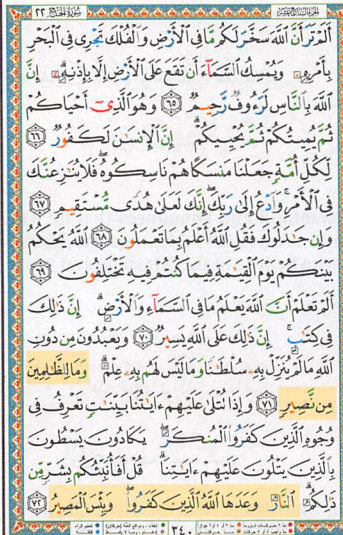 سُورَةُ الحَجِّ ٢٢
أَلَمْ تَرَ أَنَّ ٱللَّهَ سَخَّرَ لَكُم مَّا فِى ٱلْأَرْضِ وَٱلْفُلْكَ تَجْرِى فِى ٱلْبَحْرِ
بِأَمْرِهِۦ وَيُمْسِكُ ٱلسَّمَآءَ أَن تَقَعَ عَلَى ٱلْأَرْضِ إِلَّا بِإِذْنِهِۦٓ إِنَّ
ٱللَّهَ بِٱلنَّاسِ لَرَءُوفٌ رَّحِيمٌ ٦٥ وَهُوَ ٱلَّذِىٓ أَحْيَاكُمْ
ثُمَّ يُمِيتُكُمْ ثُمَّ يُحْيِيكُمْ إِنَّ ٱلْإِنسَـٰنَ لَكَفُورٌ ٦٦
لِّكُلِّ أُمَّةٍ جَعَلْنَا مَنسَكًا هُمْ نَاسِكُوهُ فَلَا يُنَـٰزِعُنَّكَ
فِى ٱلْأَمْرِ وَٱدْعُ إِلَىٰ رَبِّكَ إِنَّكَ لَعَلَىٰ هُدًى مُّسْتَقِيمٍ ٦٧
وَإِن جَـٰدَلُوكَ فَقُلِ ٱللَّهُ أَعْلَمُ بِمَا تَعْمَلُونَ ٦٨ ٱللَّهُ يَحْكُمُ
بَيْنَكُمْ يَوْمَ ٱلْقِيَـٰمَةِ فِيمَا كُنتُمْ فِيهِ تَخْتَلِفُونَ ٦٩
أَلَمْ تَعْلَمْ أَنَّ ٱللَّهَ يَعْلَمُ مَا فِى ٱلسَّمَآءِ وَٱلْأَرْضِ إِنَّ ذَٰلِكَ
فِى كِتَـٰبٍ إِنَّ ذَٰلِكَ عَلَى ٱللَّهِ يَسِيرٌ ٧٠ وَيَعْبُدُونَ مِن دُونِ
ٱللَّهِ مَا لَمْ يُنَزِّلْ بِهِۦ سُلْطَـٰنًا وَمَا لَيْسَ لَهُم بِهِۦ عِلْمٌ وَمَا لِلظَّـٰلِمِينَ
مِن نَّصِيرٍ ٧١ وَإِذَا تُتْلَىٰ عَلَيْهِمْ ءَايَـٰتُنَا بَيِّنَـٰتٍ تَعْرِفُ فِى
وُجُوهِ ٱلَّذِينَ كَفَرُوا۟ ٱلْمُنكَرَ يَكَادُونَ يَسْطُونَ
بِٱلَّذِينَ يَتْلُونَ عَلَيْهِمْ ءَايَـٰتِنَا قُلْ أَفَأُنَبِّئُكُم بِشَرٍّ مِّن
ذَٰلِكُمُ ٱلنَّارُ وَعَدَهَا ٱللَّهُ ٱلَّذِينَ كَفَرُوا۟ وَبِئْسَ ٱلْمَصِيرُ ٧٢
٣٤٠